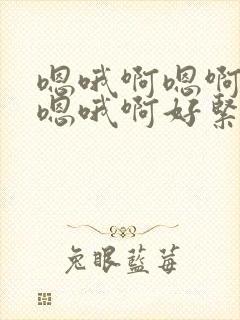 嗯哦啊嗯啊
嗯哦啊好緊
兔眼藍莓